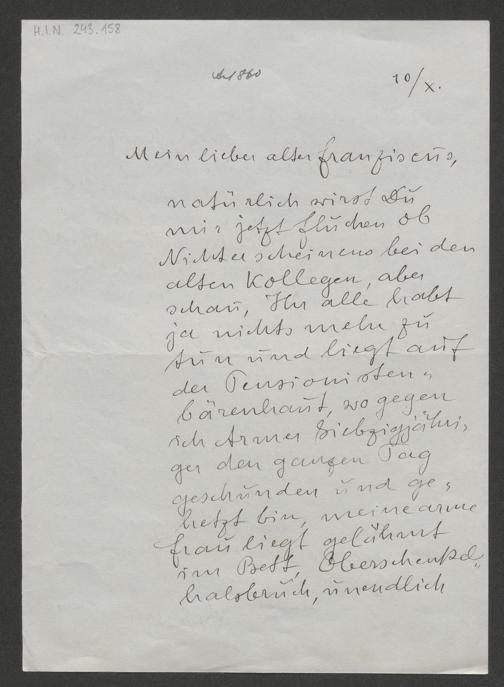 H.I.N. 243.158
10/X.
Mein lieber alter Franziscus,
natürlich wirst Du
mir jetzt fluchen ob
Nichterscheinens bei den
alten Kollegen, aber
schau, Ihr alle habt
ja nichts mehr zu
tun und liegt auf
der Pensionisten-
bärenhaut, wo gegen
ich Armer Siebzigjähri-
ger den ganzen Tag
geschunden und ge-
hetzt bin, meine arme
Frau liegt gelähmt
im Bett, Oberschenkel-
halsbruch, unendlich